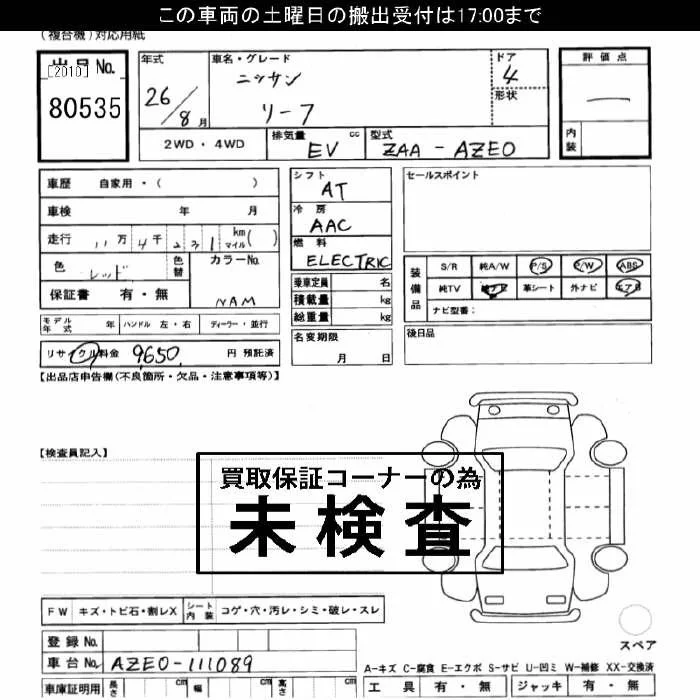 この車両の土曜日の搬出受付は17:00まで
(複合機)対応用紙
出品No.
[2010]
80535
年式 26/8月
車名・グレード ニッサン リーフ
ドア 4
形状
評価点 —
内装
2WD・4WD
排気量 cc EV
型式 ZAA-AZEO
車歴 自家用・( )
車検 年 月
走行 11万4千231 km マイル( )
色 レッド 色替
カラーNo. NAM
保証書 有・無
シフト AT
冷房 AAC
燃料 ELECTRIC
乗車定員 名
積載量 kg
総重量 kg
セールスポイント
装備品 S/R 純A/W P/S P/W ABS
純TV 純ナビ 革シート 外ナビ エアB
ナビ型番:
モデル年式 年 ハンドル 左・右 ディーラー・並行
名変期限 月 日
後日品
リサイクル料金 9650 円 預託済
【出品店申告欄(不良箇所・欠品・注意事項等)】
【検査員記入】
買取保証コーナーの為
未検査
FW キズ・トビ石・割レX シート内装 コゲ・穴・汚レ・シミ・破レ・スレ
スペア
登録No.
車台No. AZEO-111089
A-キズ C-腐食 E-エクボ S-サビ U-凹ミ W-補修 XX-交換済
車庫証明用 長さ cm 幅 cm 高さ cm
工具 有・無 ジャッキ 有・無